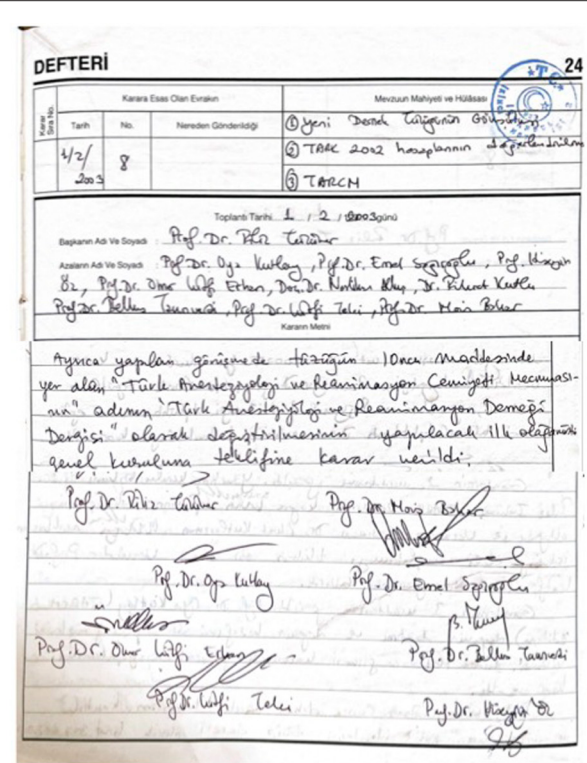 DEFTERİ
24
Karar Sıra No.
Karara Esas Olan Evrakın
Mevzuun Mahiyeti ve Hülâsası
Tarih
No.
Nereden Gönderildiği
1/2/2003
8
① Yeni Dernek Tüzüğünün
② TARK 2002 hesaplarının değerlendirilmesi
③ TARCM
Toplantı Tarihi 1 / 2 / 2003 günü
Başkanın Adı Ve Soyadı : Prof. Dr. Filiz Tüzüner
Azaların Adı Ve Soyadı : Prof. Dr. Oya Kutlay, Prof. Dr. Emel Sağıroğlu, Prof. Hüseyin
Öz, Prof. Dr. Ömer Lütfi Erhan, Doç. Dr. Dr. Kutlu
Prof. Dr. Belkıs Tanrıverdi, Prof. Dr. Lütfi Telci, Prof. Dr. Mois Bahar
Kararın Metni
Ayrıca yapılan görüşmede tüzüğün 10uncu maddesinde
yer alan "Türk Anesteziyoloji ve Reanimasyon Cemiyeti Mecmuası-
nın" adının "Türk Anesteziyoloji ve Reanimasyon Derneği
Dergisi" olarak değiştirilmesinin yapılacak ilk olağanüstü
genel kuruluna teklifine karar verildi.
Prof. Dr. Filiz Tüzüner
Prof. Dr. Mois Bahar
Prof. Dr. Oya Kutlay
Prof. Dr. Emel Sağıroğlu
Prof. Dr. Ömer Lütfi Erhan
Prof. Dr. Belkıs Tanrıverdi
Prof. Dr. Lütfi Telci
Prof. Dr. Hüseyin Öz